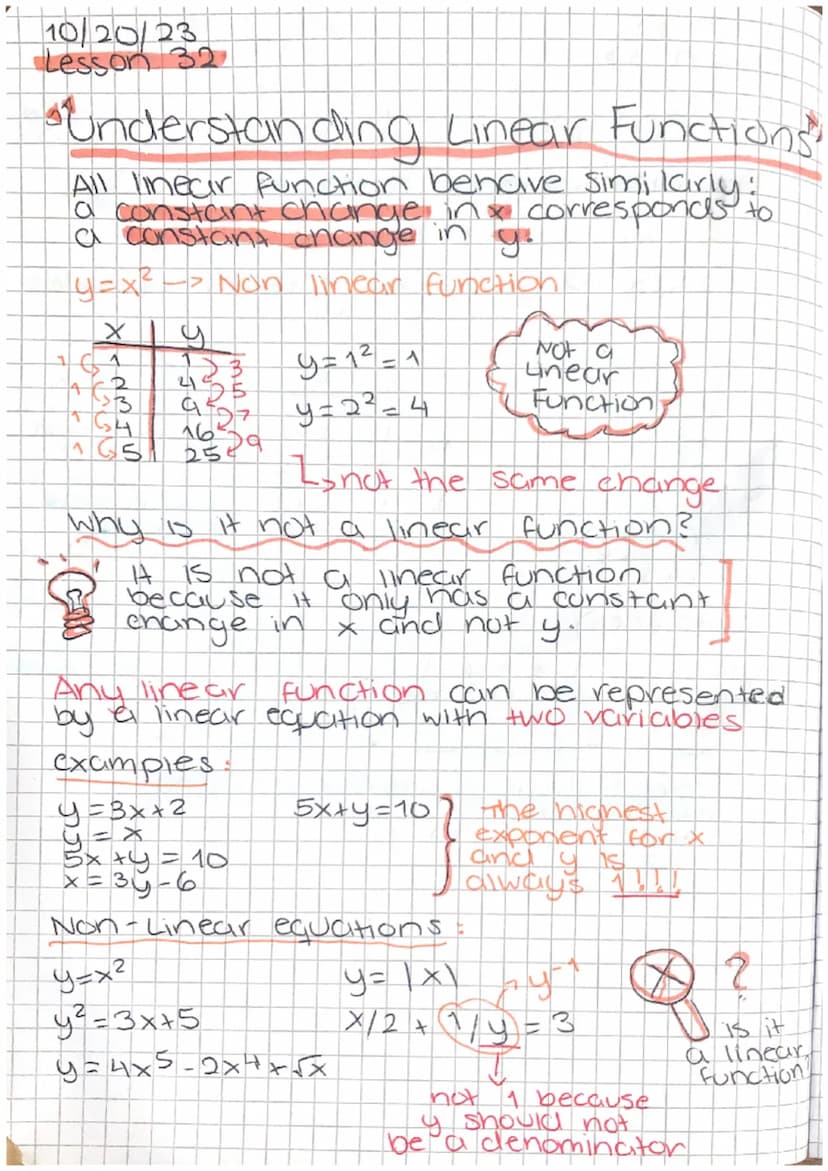 10/20/23
Lesson 32
"Understanding Linear Functions"
All linear function behave similarly:
a constant change in x corresponds to
a constant change in y.
y=x² -> Non linear function
x y
1 1 1 3
1 2 4 5
1 3 9 7
1 4 16 9
5 25
y=1²=1
y=2²=4
Not a
Linear
Function
↳not the same change
Why is it not a linear function?
It is not a linear function
because it only has a constant
change in x and not y.
Any linear function can be represented
by a linear equation with two variables
examples:
y=3x+2
y=x
5x+y=10
x=3y-6
5x+y=10
The highest
exponent for x
and y is
always 1!!!!
Non-Linear equations:
y=x²
y²=3x+5
y=4x5-2x4+√x
y=|x|
y⁻¹
x/2 + 1/y = 3
not 1 because
y should not
be a denominator
x ?
is it
a linear
function